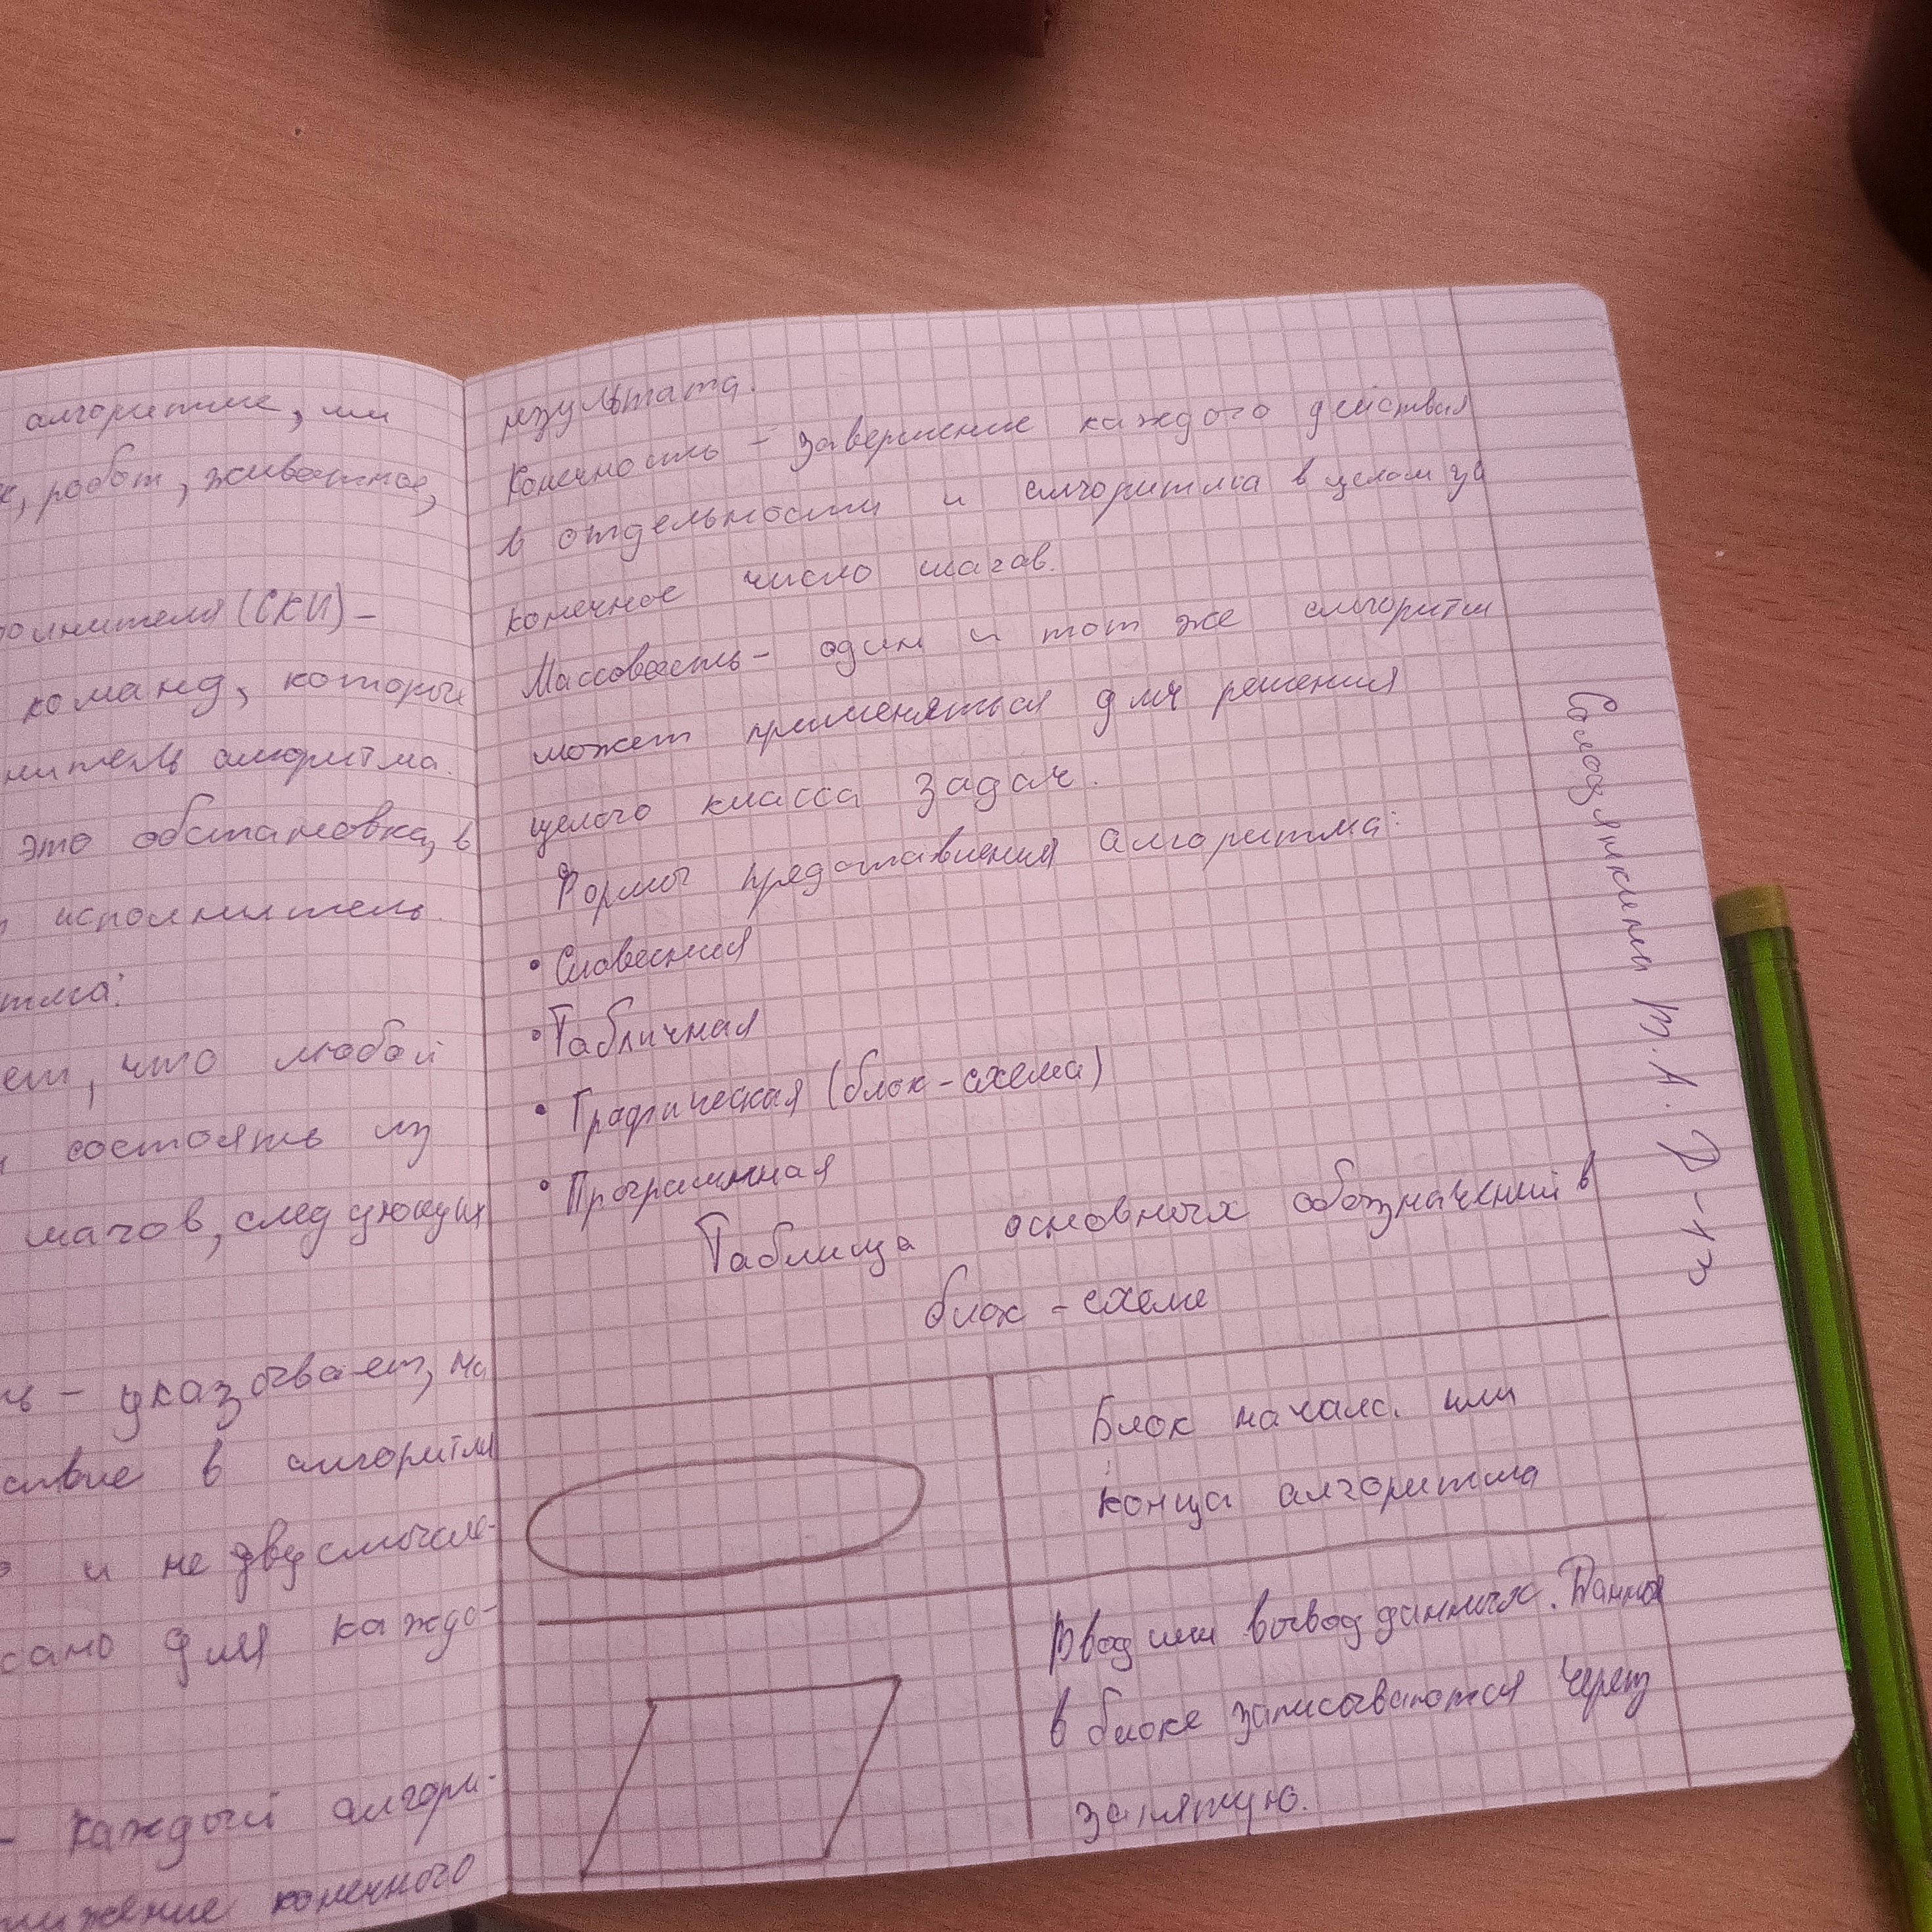 алгоритме, или
к, робот, животное,
олнителя (СКИ) -
команд, которые
нитель алгоритма.
это обстановка, в
исполнитель.
тма:
ет, что любой
состоять из
шагов, следующих
ть - указывает, на
ствие в алгоритм
и не двусмысле-
сано для каждо-
- каждый алгори-
тижение конечного
результата.
Конечность - завершение каждого действия
в отдельности и алгоритма в целом за
конечное число шагов.
Массовость - один и тот же алгоритм
может применяться для решения
целого класса задач.
Формы представления алгоритма:
• Словесная
• Табличная
• Графическая (блок-схема)
• Программная
Таблица основных обозначений в
блок-схеме
Блок начала или
конца алгоритма
Ввод или вывод данных. Данные
в блоке записываются через
запятую.
В.А. Д-1ч